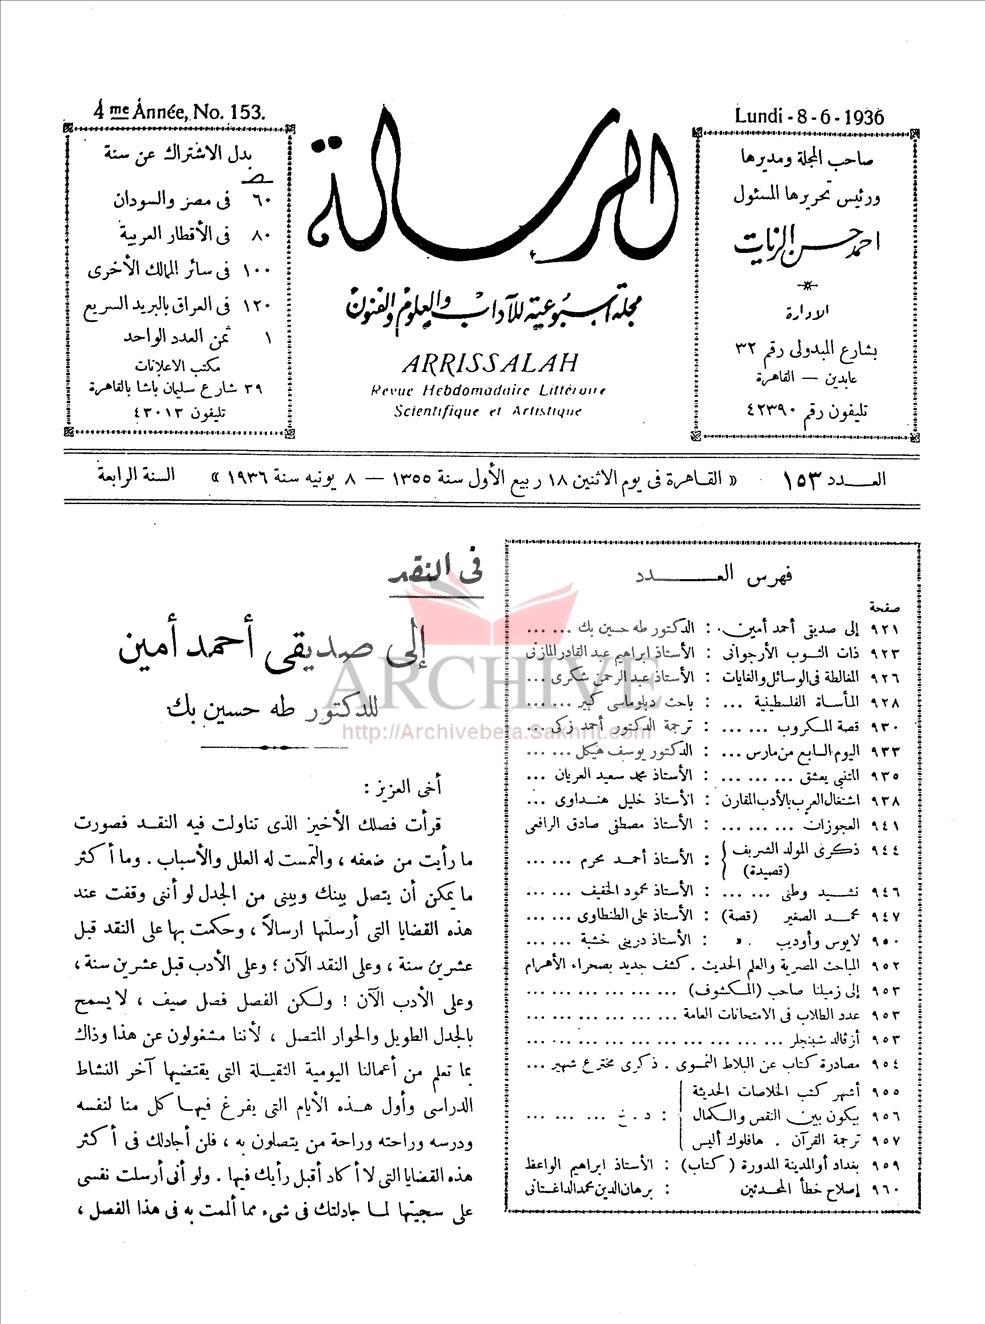 4 me Année, No. 153.
Lundi - 8 - 6 - 1936
صاحب المجلة ومديرها
ورئيس تحريرها المسئول
احمد حسن الزيات
الادارة
بشارع المبدولى رقم ٣٢
عابدين — القاهرة
تليفون رقم ٤٢٣٩٠
الرسالة
مجلة اسبوعية للآداب والعلوم والفنون
ARRISSALAH
Revue Hebdomadaire Littéraire
Scientifique et Artistique
بدل الاشتراك عن سنة
ص
٦٠ فى مصر والسودان
٨٠ فى الأقطار العربية
١٠٠ فى سائر الممالك الأخرى
١٢٠ فى العراق بالبريد السريع
١ ثمن العدد الواحد
مكتب الاعلانات
٣٩ شارع سليمان باشا بالقاهرة
تليفون ٤٣٠١٣
العـــدد ١٥٣ « القاهرة فى يوم الاثنين ١٨ ربيع الأول سنة ١٣٥٥ — ٨ يونيه سنة ١٩٣٦ » السنة الرابعة
فهرس العـــدد
صفحة
٩٢١ إلى صديقى أحمد أمين . : الدكتور طه حسين بك ... ...
٩٢٣ ذات الثوب الأرجوانى : الأستاذ ابراهيم عبد القادر المازنى
٩٢٦ المغالطة فى الوسائل والغايات : الأستاذ عبد الرحمن شكرى ...
٩٢٨ المأساة الفلسطينية ... : باحث دبلوماسى كبير ... ...
٩٣٠ قصة المكروب ... ... : ترجمة الدكتور أحمد زكى ... ...
٩٣٣ اليوم السابع من مارس ... : الدكتور يوسف هيكل ... ...
٩٣٥ المتنبى يعشق ... ... : الأستاذ محمد سعيد العريان ...
٩٣٨ اشتغال العرب بالأدب المقارن : الأستاذ خليل هنداوى ...
٩٤١ العجوزات ... ... ... : الأستاذ مصطفى صادق الرافعى
٩٤٤ ذكرى المولد الشريف (قصيدة) : الأستاذ أحمد محرم ... ...
٩٤٦ نشيد وطنى ... ... : الأستاذ محمود الخفيف ... ...
٩٤٧ محمد الصغير (قصة) : الأستاذ على الطنطاوى ... ...
٩٥٠ لايوس وأوديب . » : الأستاذ درينى خشبة ... ...
٩٥٢ المباحث المصرية والعلم الحديث . كشف جديد بصحراء الأهرام
٩٥٣ إلى زميلنا صاحب (المكشوف) ... ... ... ... ... ...
٩٥٣ عدد الطلاب فى الامتحانات العامة ... ... ... ... ...
٩٥٣ أزفالد شبنجلر ... ... ... ... ... ... ... ...
٩٥٤ مصادرة كتاب عن البلاط النمسوى . ذكرى مخترع شهير ...
٩٥٥ أشهر كتب الخلاصات الحديثة
٩٥٦ بيكون بين النقص والكمال : د . خ ... ... ...
٩٥٧ ترجمة القرآن . هافلوك أليس
٩٥٩ بغداد أو المدينة المدورة (كتاب) : الأستاذ ابراهيم الواعظ
٩٦٠ إصلاح خطأ المحدثين : برهان الدين محمد الداغستانى
فى النقد
إلى صديقى أحمد أمين
للدكتور طه حسين بك
أخى العزيز :
قرأت فصلك الأخير الذى تناولت فيه النقد فصورت
ما رأيت من ضعفه ، والتمست له العلل والأسباب . وما أكثر
ما يمكن أن يتصل بينك وبينى من الجدل لو أننى وقفت عند
هذه القضايا التى أرسلتها ارسالاً ، وحكمت بها على النقد قبل
عشرين سنة ، وعلى النقد الآن ؛ وعلى الأدب قبل عشرين سنة ،
وعلى الأدب الآن ! ولكن الفصل فصل صيف ، لا يسمح
بالجدل الطويل والحوار المتصل ، لأننا مشغولون عن هذا وذاك
بما تعلم من أعمالنا اليومية الثقيلة التى يقتضيها آخر النشاط
الدراسى وأول هذه الأيام التى يفرغ فيها كل منا لنفسه
ودرسه وراحته وراحة من يتصلون به ، فلن أجادلك فى أكثر
هذه القضايا التى لا أكاد أقبل رأيك فيها . ولو أنى أرسلت نفسى
على سجيتها لما جادلتك فى شىء مما ألممت به فى هذا الفصل ،
ARCHIVE
http://Archivebeta.Sakhrit.com